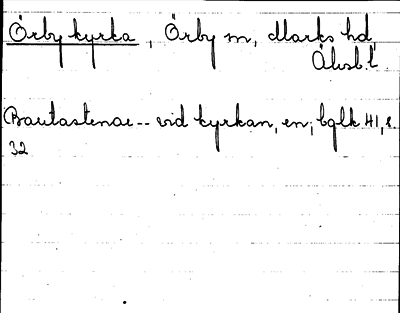 Örby kyrka, Örby sn, Marks hd,
Älvsb.l
Bautastenar -- vid kyrkan, en; bglk 41, s.
32